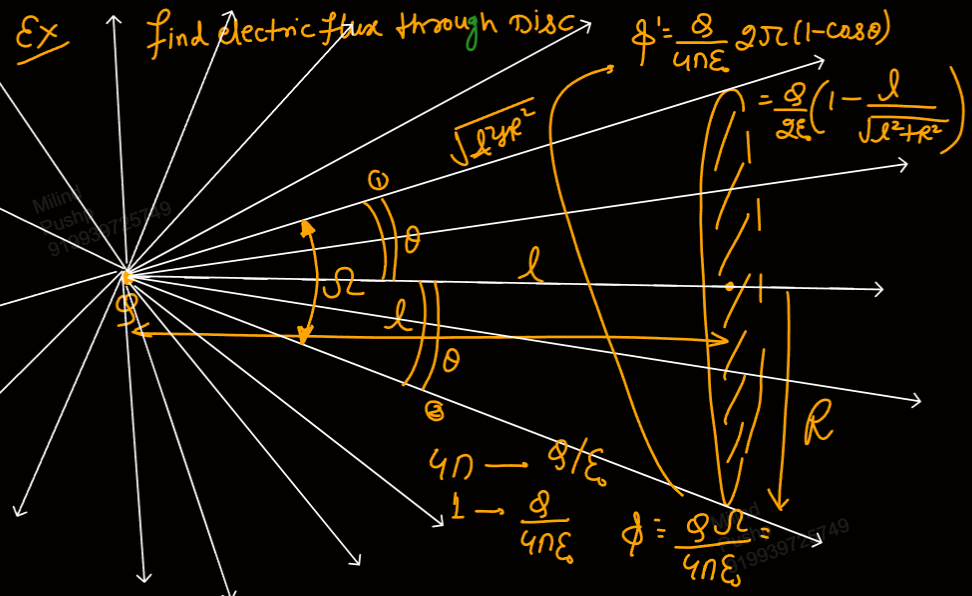 Ex find electric flux through Disc
φ = Q/4πε₀ 2π(1-cosθ)
= Q/2ε₀ (1 - l/√l²+R²)
√l²+R²
①
θ
Ω
l
l
Q
θ
②
R
4π → Q/ε₀
1 → Q/4πε₀
φ = QΩ/4πε₀ =
Milind
Pushp
919939725749
Milind
Pushp
919939725749